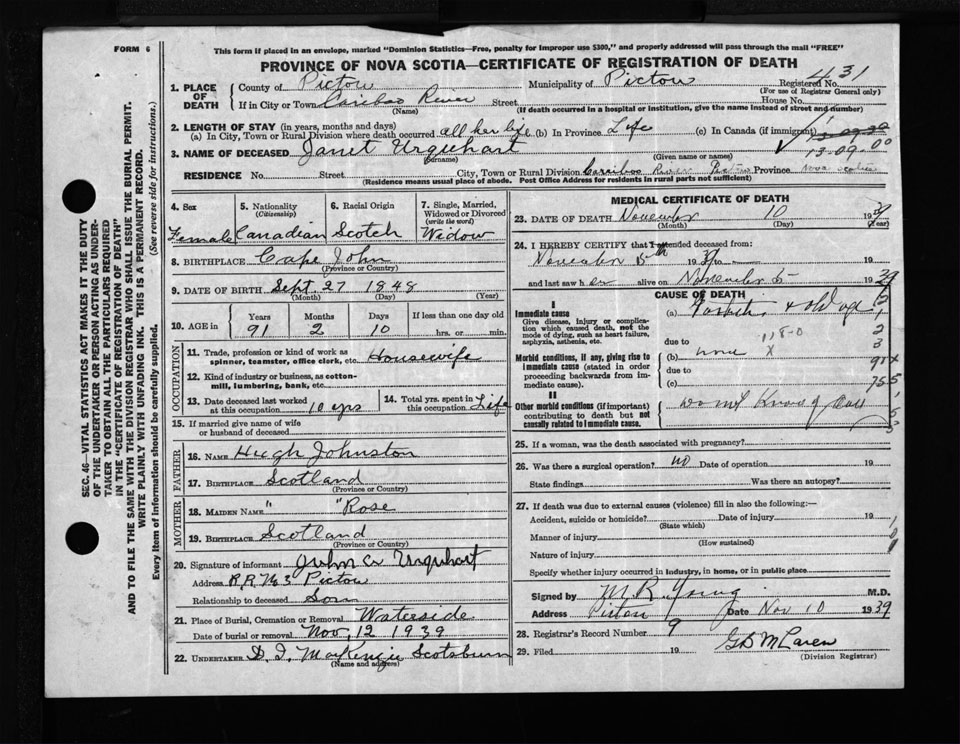 FORM 6
This form if placed in an envelope, marked "Dominion Statistics—Free, penalty for improper use $300," and properly addressed will pass through the mail "FREE"
PROVINCE OF NOVA SCOTIA—CERTIFICATE OF REGISTRATION OF DEATH
1. PLACE OF DEATH
County of Pictou Municipality of Pictou Registered No. 431
(For use of Registrar General only)
If in City or Town Caribao River Street House No.
(Name) (If death occurred in a hospital or institution, give the name instead of street and number)
2. LENGTH OF STAY (in years, months and days)
(a) In City, Town or Rural Division where death occurred all her life (b) In Province Life (c) In Canada (if immigrant)
13-09-00
3. NAME OF DECEASED Janet Urquhart
(Surname) (Given name or names)
RESIDENCE No. Street City, Town or Rural Division Cariboo River Pictou Province Nova Scotia
(Residence means usual place of abode. Post Office Address for residents in rural parts not sufficient)
4. Sex
Female
5. Nationality
(Citizenship)
Canadian
6. Racial Origin
Scotch
7. Single, Married, Widowed or Divorced
(write the word)
Widow
8. BIRTHPLACE Cape John
(Province or Country)
9. DATE OF BIRTH Sept 27 1848
(Month) (Day) (Year)
10. AGE in Years Months Days If less than one day old
91 2 10 hrs. or min.
OCCUPATION
11. Trade, profession or kind of work as spinner, teamster, office clerk, etc. Housewife
12. Kind of industry or business, as cotton-mill, lumbering, bank, etc.
13. Date deceased last worked at this occupation 10 yrs
14. Total yrs. spent in this occupation Life
15. If married give name of wife or husband of deceased
FATHER
16. NAME Hugh Johnston
17. BIRTHPLACE Scotland
(Province or Country)
MOTHER
18. MAIDEN NAME " " Rose
19. BIRTHPLACE Scotland
(Province or Country)
20. Signature of informant John A Urquhart
Address R.R. No 3 Pictou
Relationship to deceased Son
21. Place of Burial, Cremation or Removal Waterside
Date of burial or removal Nov, 12 1939
22. UNDERTAKER D. I. MacKenzie Scotsburn
(Name and address)
MEDICAL CERTIFICATE OF DEATH
23. DATE OF DEATH November 10 1939
(Month) (Day) (Year)
24. I HEREBY CERTIFY that I attended deceased from:
November 5th 1939 to 19
and last saw her alive on November 5 1939
CAUSE OF DEATH
I
Immediate cause
Give disease, injury or complication which caused death, not the mode of dying, such as heart failure, asphyxia, asthenia, etc.
(a) & old age
due to
Morbid conditions, if any, giving rise to immediate cause (stated in order proceeding backwards from immediate cause).
(b) none
due to
(c)
II
Other morbid conditions (if important) contributing to death but not causally related to immediate cause.
do not know of any
25. If a woman, was the death associated with pregnancy?
26. Was there a surgical operation? no Date of operation 19
State findings Was there an autopsy?
27. If death was due to external causes (violence) fill in also the following:—
Accident, suicide or homicide? Date of injury 19
(State which)
Manner of injury
(How sustained)
Nature of injury
Specify whether injury occurred in industry, in home, or in public place
Signed by M R Young M.D.
Address Pictou Date Nov 10 1939
28. Registrar's Record Number 9
29. Filed 19 G D McLaren
(Division Registrar)
SEC. 46—VITAL STATISTICS ACT MAKES IT THE DUTY
OF THE UNDERTAKER OR PERSON ACTING AS UNDER-
TAKER TO OBTAIN ALL THE PARTICULARS REQUIRED
IN THE "CERTIFICATE OF REGISTRATION OF DEATH"
AND TO FILE THE SAME WITH THE DIVISION REGISTRAR WHO SHALL ISSUE THE BURIAL PERMIT.
WRITE PLAINLY WITH UNFADING INK. THIS IS A PERMANENT RECORD.
Every item of information should be carefully supplied. (See reverse side for instructions.)